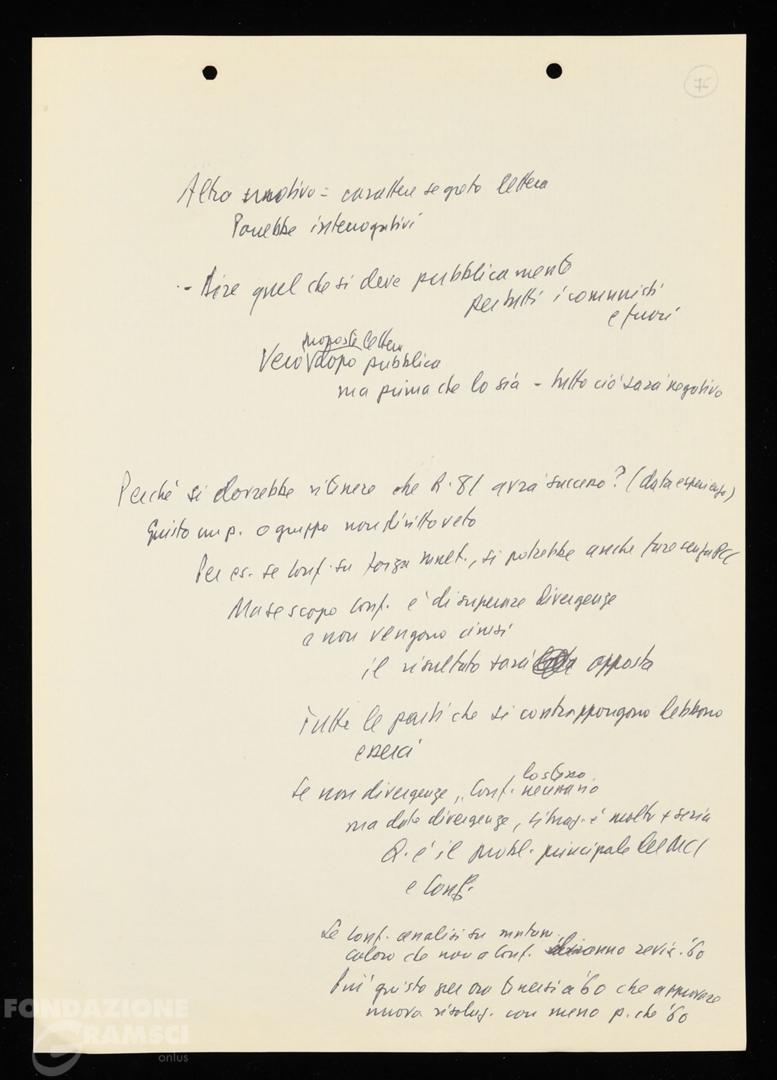 76
Altro motivo = carattere segreto lettera
Porrebbe interrogativi
- Dire quel che si deve pubblicamente
per tutti i comunisti
e fuori
proposte lettera
Vero dopo pubblica
ma prima che lo sia - tutto ciò sarà negativo
Perché si dovrebbe ritenere che R. 81 avrà successo? (data esperienza)
Giusto un p. o gruppo non diritto veto
Per es. se Conf. su forza, si potrebbe anche fare senza PCC
Ma se scopo Conf. è di superare divergenze
e non vengono cinesi
il risultato sarà opposto
Tutte le parti che si contrappongono debbono
esserci
Se non divergenze, Conf. lo stesso
necessario
ma date divergenze, situaz. è molto + seria
Q. è il probl. principale del MCI
e Conf.
Se Conf. analisi su mutam.
coloro che non a Conf. diranno revis. '60
Più giusto per ora tenersi a '60 che approvare
nuova risoluz. con meno p. che '60
FONDAZIONE
GRAMSCI
onlus